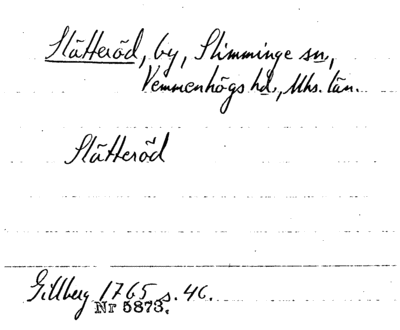 Slätteröd, by, Slimminge sn,
Vemmenhögs hd., Mhs. län.
Slätteröd
Gillberg 1765 s. 46.
Nr 5873.